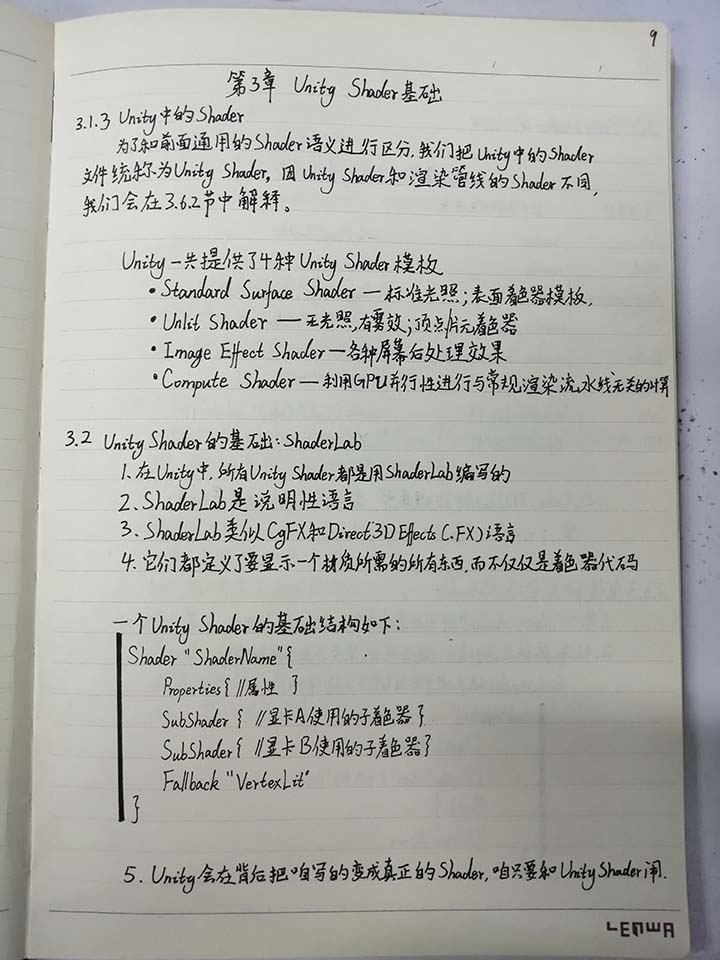 9
第3章 Unity Shader基础
3.1.3 Unity中的Shader
为了和前面通用的Shader语义进行区分,我们把Unity中的Shader
文件统称为Unity Shader, 因Unity Shader和渲染管线的Shader不同,
我们会在3.6.2节中解释。
Unity一共提供了4种Unity Shader模板
•Standard Surface Shader — 标准光照;表面着色器模板,
•Unlit Shader — 无光照,有雾效;顶点/片元着色器
•Image Effect Shader — 各种屏幕后处理效果
•Compute Shader — 利用GPU并行性进行与常规渲染流水线无关的计算
3.2 Unity Shader的基础:ShaderLab
1. 在Unity中,所有Unity Shader都是用ShaderLab编写的
2. ShaderLab是说明性语言
3. ShaderLab类似CgFX和Direct3D Effects (.FX)语言
4. 它们都定义了要显示一个材质所需的所有东西,而不仅仅是着色器代码
一个Unity Shader的基础结构如下:
Shader "ShaderName"{
Properties{ //属性 }
SubShader { //显卡A使用的子着色器 }
SubShader{ //显卡B使用的子着色器}
Fallback "VertexLit"
}
5. Unity会在背后把咱写的变成真正的Shader, 咱只要和Unity Shader闹.
LENWA